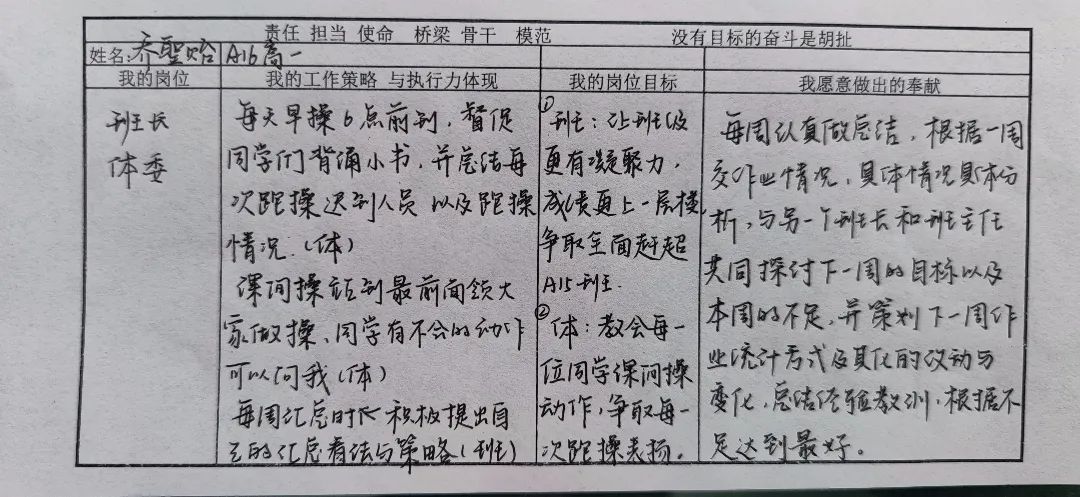 责任 担当 使命 桥梁 骨干 模范 没有目标的奋斗是胡扯
姓名: 乔聖 A16高一
我的岗位 我的工作策略 与执行力体现 我的岗位目标 我愿意做出的奉献
班长
体委
每天早操6点前到,督促
同学们背诵小书,并总结每
次跑操迟到人员 以及跑操
情况.(体)
课间操站到最前面领大
家做操、同学有不会的动作
可以问我(体)
每周汇总时 积极提出自
己的汇总看法与策略(班)
①
班:让班级
更有凝聚力,
成绩更上一层楼,
争取全面赶超
A15班.
②
体:教会每一
位同学课间操
动作,争取每一
次跑操表扬。
每周认真做总结,根据一周
交作业情况,具体情况具体分
析,与另一个班长和班主任
共同探讨下一周的目标以及
本周的不足,并策划下一周作
业统计方式及其他的改动与
变化,总结经验教训,根据不
足达到最好。